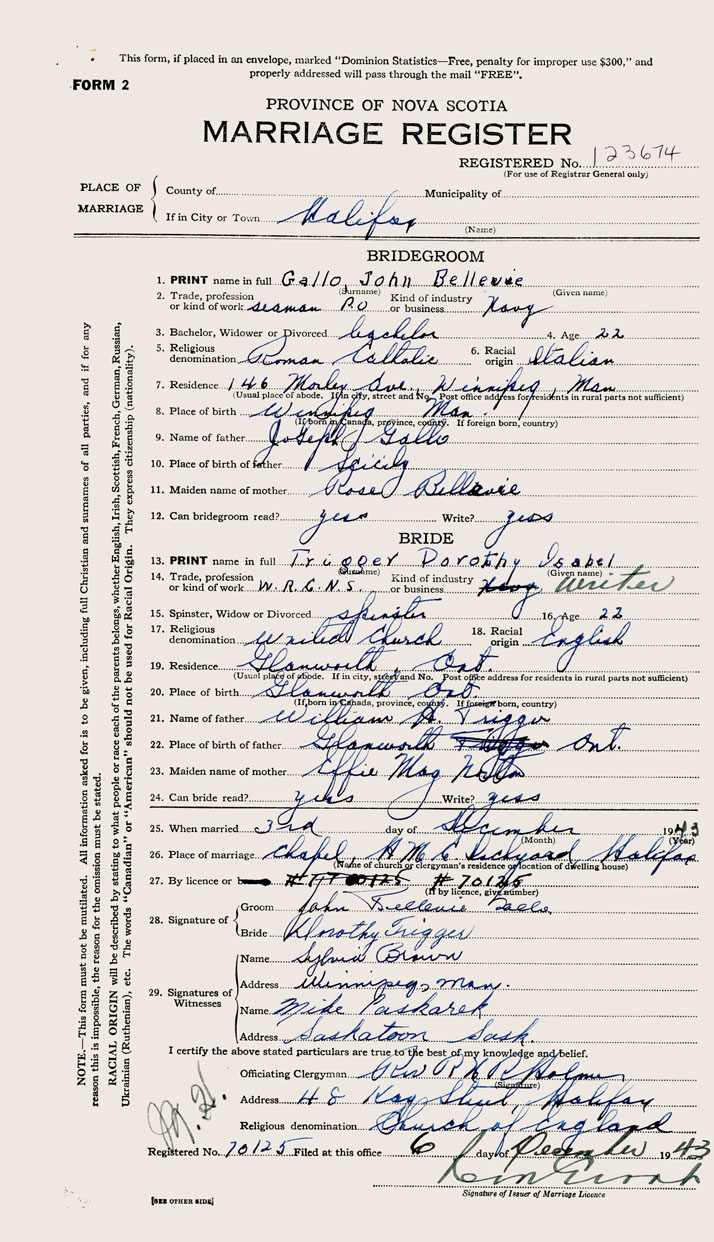 This form, if placed in an envelope, marked "Dominion Statistics—Free, penalty for improper use $300," and
properly addressed will pass through the mail "FREE".
FORM 2
PROVINCE OF NOVA SCOTIA
MARRIAGE REGISTER
REGISTERED No. 123674
(For use of Registrar General only)
PLACE OF MARRIAGE
County of Municipality of
If in City or Town Halifax
(Name)
BRIDEGROOM
1. PRINT name in full Gallo, John Bellevie
(Surname) (Given name)
2. Trade, profession or kind of work seaman P.O Kind of industry or business Navy
3. Bachelor, Widower or Divorced bachelor 4. Age 22
5. Religious denomination Roman Catholic 6. Racial origin Italian
7. Residence 146 Morley Ave., Winnipeg, Man
(Usual place of abode. If in city, street and No. Post office address for residents in rural parts not sufficient)
8. Place of birth Winnipeg Man.
(If born in Canada, province, county. If foreign born, country)
9. Name of father Joseph Gallo
10. Place of birth of father Scicily
11. Maiden name of mother Rose Bellevie
12. Can bridegroom read? yess Write? yess
BRIDE
13. PRINT name in full Trigger Dorothy Isabel
(Surname) (Given name)
14. Trade, profession or kind of work W.R.C.N.S. Kind of industry or business Navy Writer
15. Spinster, Widow or Divorced spinster 16. Age 22
17. Religious denomination United Church 18. Racial origin English
19. Residence Glanworth, Ont.
(Usual place of abode. If in city, street and No. Post office address for residents in rural parts not sufficient)
20. Place of birth Glanworth Ont.
(If born in Canada, province, county. If foreign born, country)
21. Name of father William A. Trigger
22. Place of birth of father Glanworth Ont.
23. Maiden name of mother Effie May
24. Can bride read? yess Write? yess
25. When married 3rd day of December 1943
(Month) (Year)
26. Place of marriage Chapel, H.M.C. Dockyard, Halifax
(Name of church or clergyman's residence or location of dwelling house)
27. By licence or # 70125
(If by licence, give number)
28. Signature of
Groom John Bellevie Gallo
Bride Dorothy Trigger
29. Signatures of Witnesses
Name Sylvia Brown
Address Winnipeg, Man.
Name Mike Paskarek
Address Saskatoon Sask.
I certify the above stated particulars are true to the best of my knowledge and belief.
Officiating Clergyman Rev Holmes
(Signature)
Address 48 Kaye Street, Halifax
Religious denomination Church of England
Registered No. 70125 Filed at this office 6 day of December 1943
Signature of Issuer of Marriage Licence
[SEE OTHER SIDE]
NOTE.—This form must not be mutilated. All information asked for is to be given, including full Christian and surnames of all parties, and if for any
reason this is impossible, the reason for the omission must be stated.
RACIAL ORIGIN will be described by stating to what people or race each of the parents belongs, whether English, Irish, Scottish, French, German, Russian,
Ukrainian (Ruthenian), etc. The words "Canadian" or "American" should not be used for Racial Origin. They express citizenship (nationality).